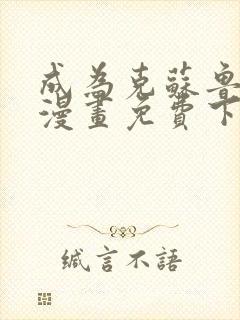 成為克蘇魯
漫畫免費下
緘言不語